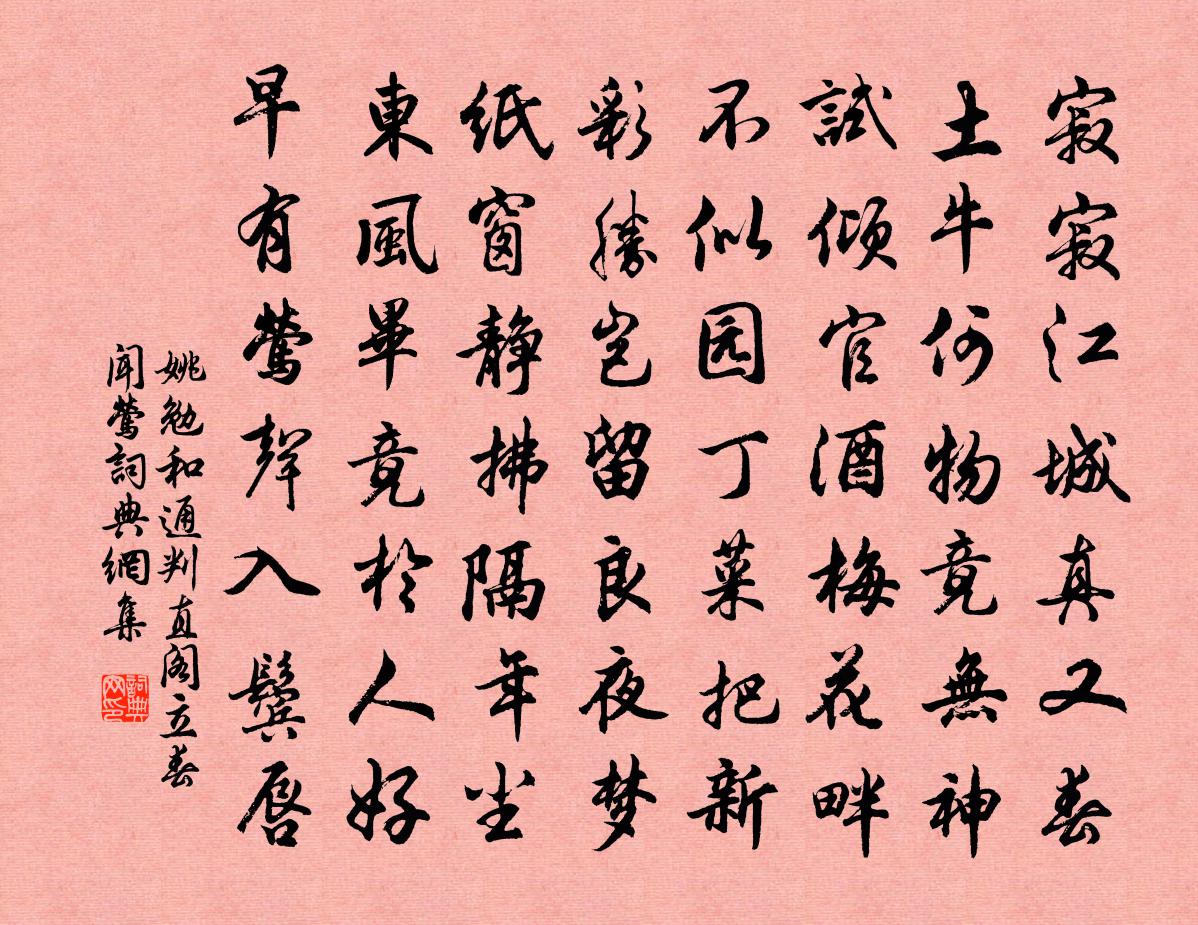 寂寂江城真又春
土牛何物竟無神
試傾官酒梅花畔
不似园丁菜把新
彩勝岂留良夜梦
紙窗静拂隔年尘
東風畢竟於人好
早有鶯聲入鬓唇
姚勉和通判直阁立春
闻鶯詞典網集
詞典网印